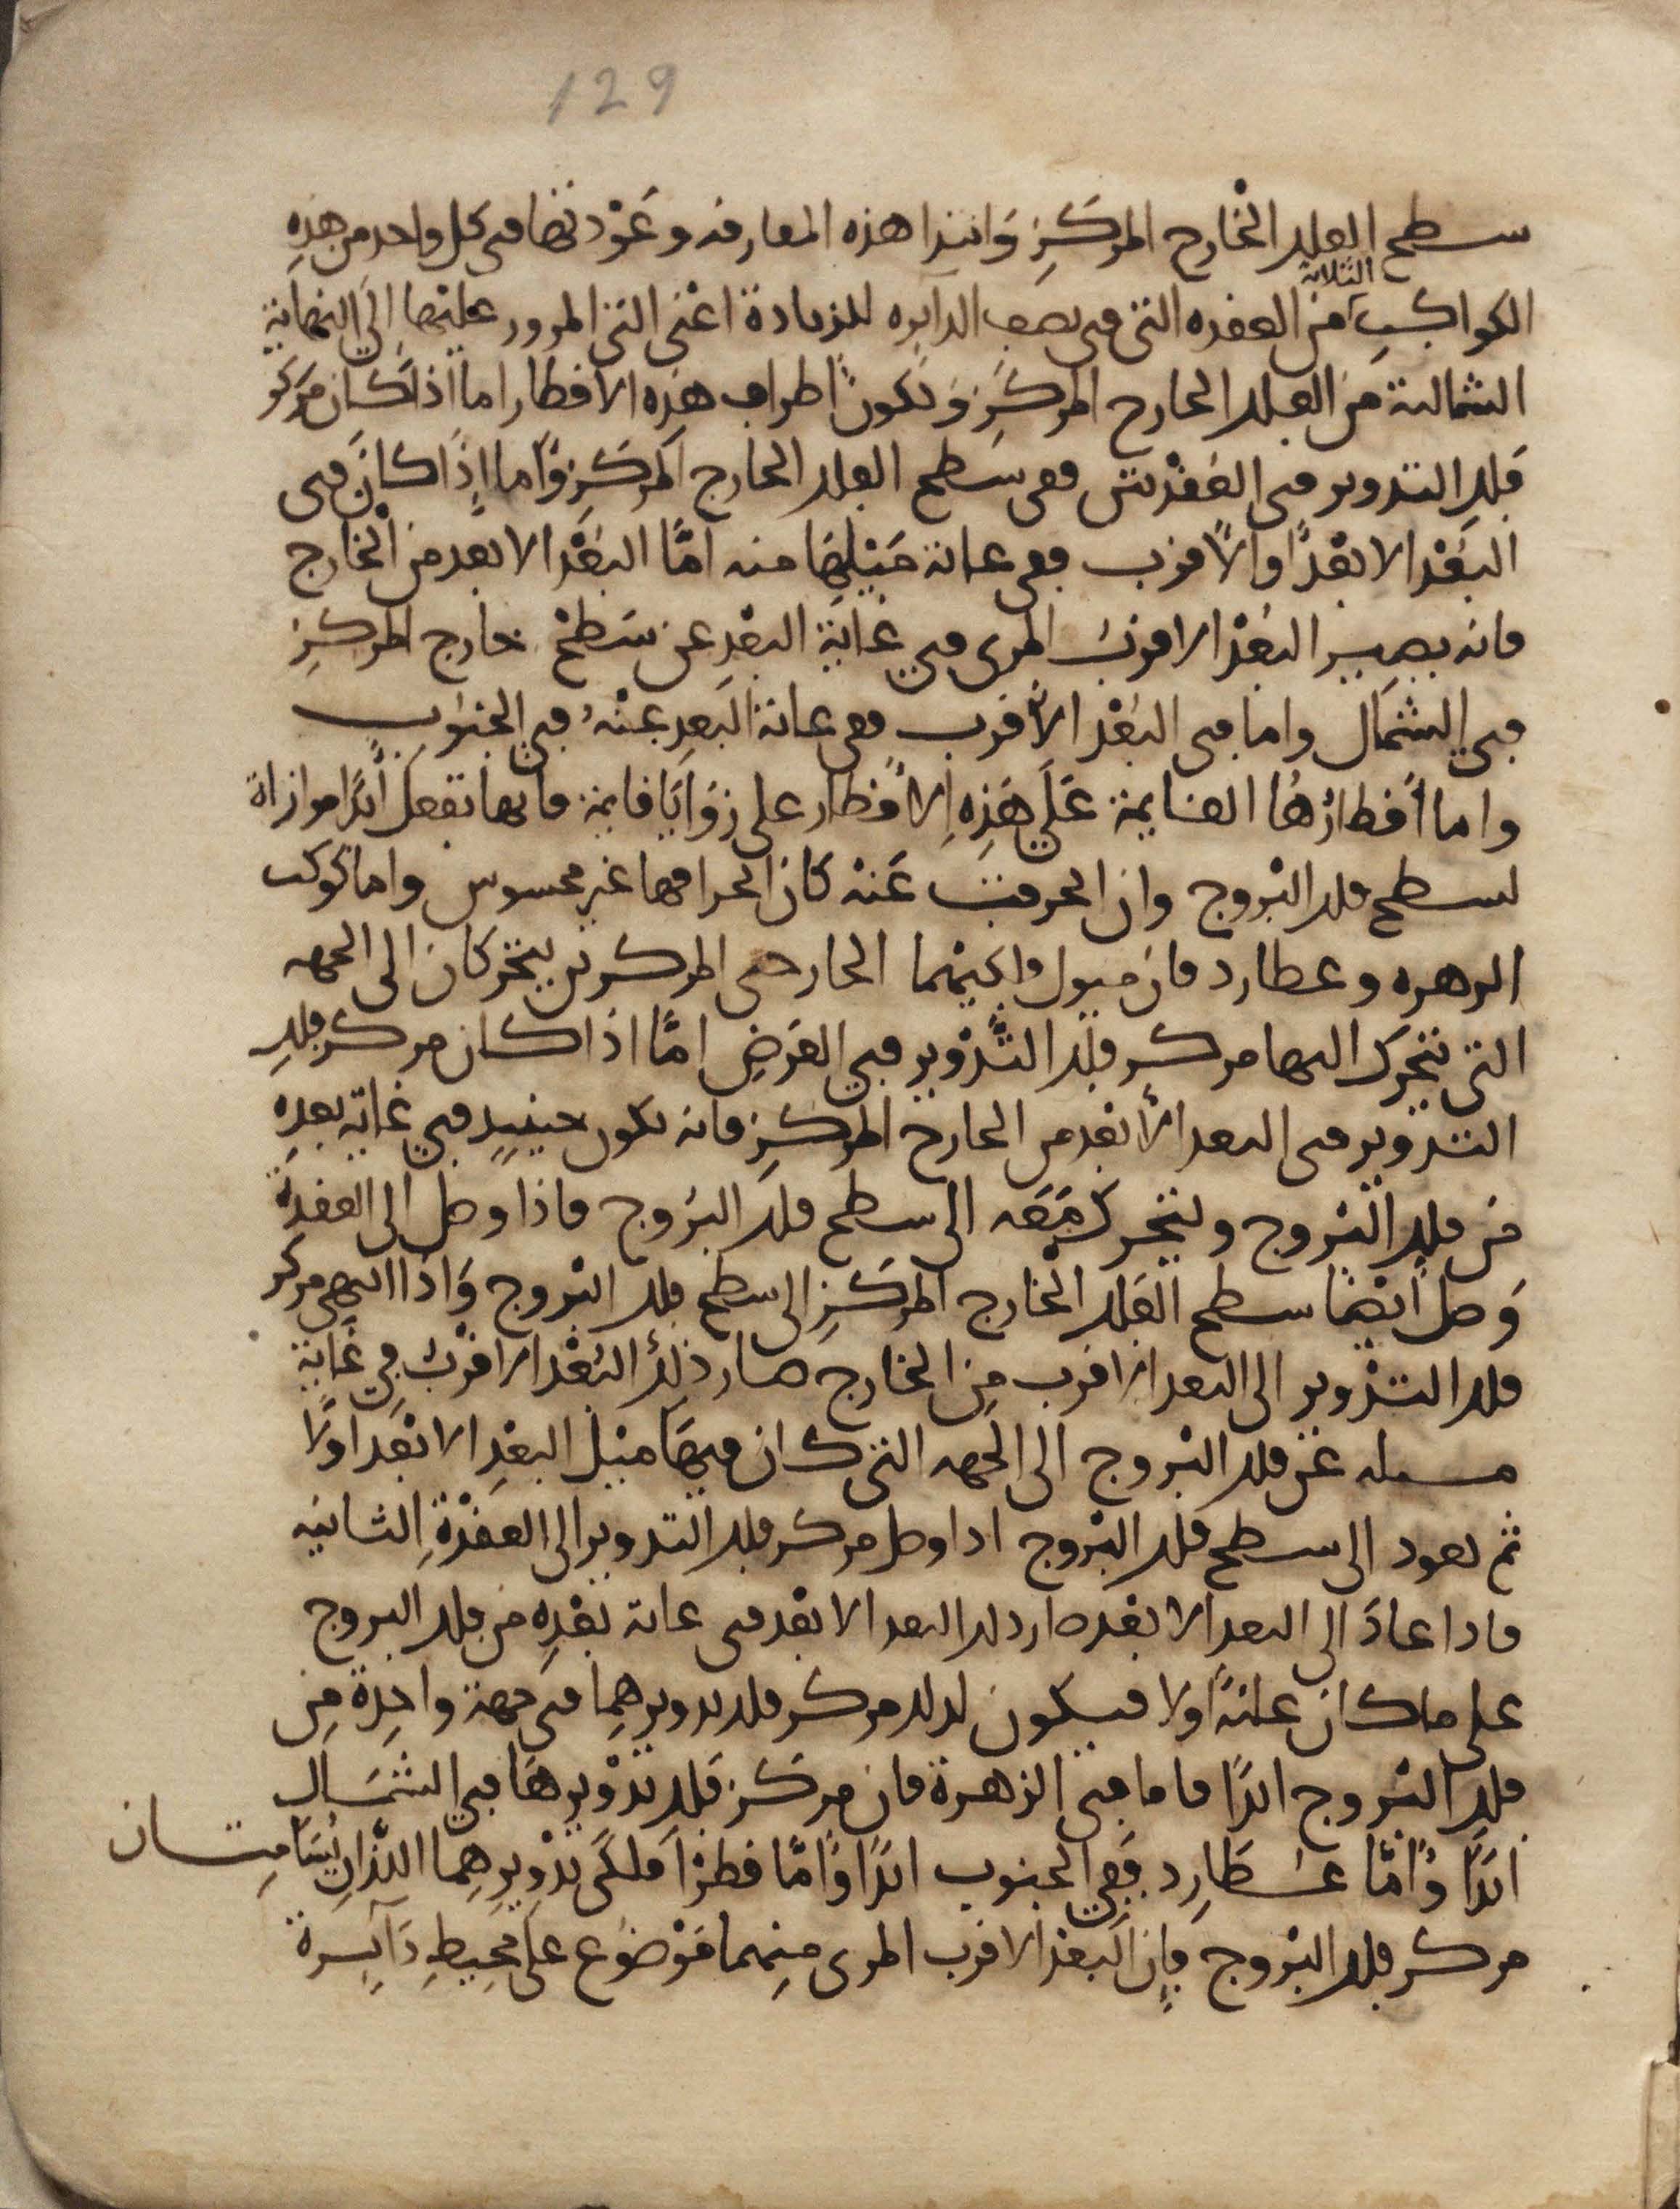 129
سطح الفلك الخارج المركز وابتدا هذه المفارقه وعودتها في كل واحد من هذه
الكواكب الثلاثة من العقده التي في نصف الدايره للزيادة اعني التي المرور عليها الى النهاية
الشمالية من الفلك الخارج المركز وتكون اطراف هذه الاقطار اما اذا كان مركز
فلك التدوير في العقدتين ففي سطح الفلك الخارج المركز واما اذا كان في
البعد الابعد او الاقرب ففي غاية ميلها منه اما البعد الابعد من الخارج
فانه يصير البعد الاقرب المرى في غاية البعد عن سطح خارج المركز
في الشمال واما في البعد الاقرب ففي غاية البعد عنه في الجنوب
واما اقطارها القايمة على هذه الاقطار على زوايا قايمة فانها تفعل ابدا موازاة
لسطح فلك البروج وان انحرفت عنه كان انحرافها غير محسوس واما كوكب
الزهره وعطارد فان ميول فلكيهما الخارجي المركزين يتحركان الى الجهه
التي يتحرك اليها مركز فلك التدوير في العرض اما اذا كان مركز فلك
التدوير في البعد الابعد من الخارج المركز فانه يكون حينيذ في غاية بعده
من فلك البروج ويتحرك معه الى سطح فلك البروج فاذا وصل الى العقدة
وصل ايضا سطح الفلك الخارج المركز الى سطح فلك البروج واذا انتهى مركز
فلك التدوير الى البعد الاقرب من الخارج صار ذلك البعد الاقرب في غاية
ميله عن فلك البروج الى الجهه التي كان فيها ميل البعد الابعد اولا
ثم يعود الى سطح فلك البروج اذا وصل مركز فلك التدوير الى العقدة الثانيه
فاذا عاد الى البعد الابعد صار ذلك البعد الابعد في غاية بعده من فلك البروج
على ما كان عليه اولا فيكون لذلك مركز فلك تدويرهما في جهة واحدة من
فلك البروج ابدا فاما في الزهرة فان مركز فلك تدويرها في الشمال
ابدا واما عطارد ففي الجنوب ابدا واما قطرا فلكي تدويرهما اللذان يسامتان
مركز فلك البروج فان البعد الاقرب المرى منهما موضوع على محيط دآيرة